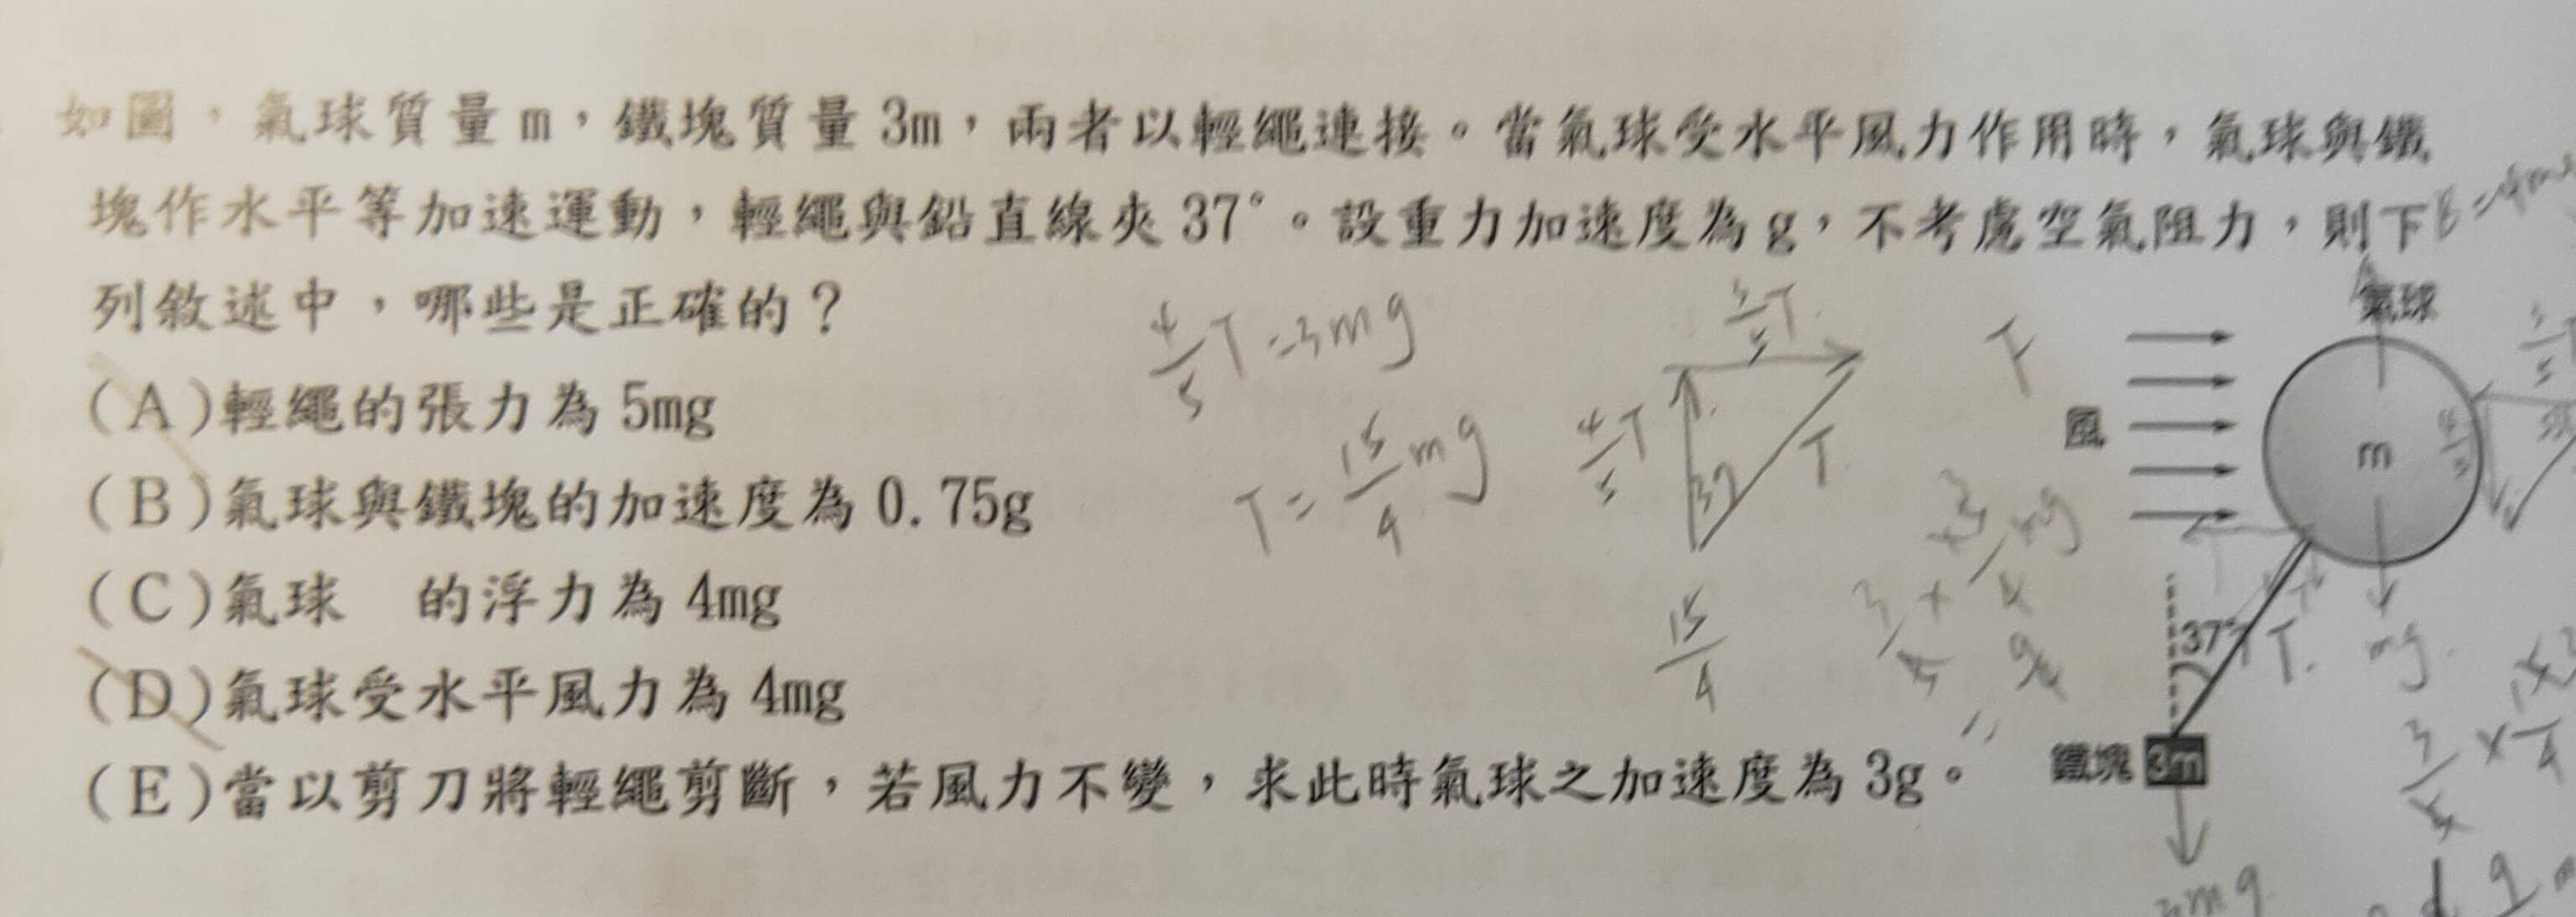 如圖，氣球質量 m，鐵塊質量 3m，兩者以輕繩連接。當氣球受水平風力作用時，氣球與鐵
塊作水平等加速運動，輕繩與鉛直線夾 37°。設重力加速度為 g，不考慮空氣阻力，則下
列敘述中，哪些是正確的？
(A)輕繩的張力為 5mg
(B)氣球與鐵塊的加速度為 0.75g
(C)氣球 的浮力為 4mg
(D)氣球受水平風力為 4mg
(E)當以剪刀將輕繩剪斷，若風力不變，求此時氣球之加速度為 3g。
氣球
風
m
37°
鐵塊 3m
4/5 T = 3mg
T = 15/4 mg
3/5 T
4/5 T
37
T
15/4
F
T.
mg.